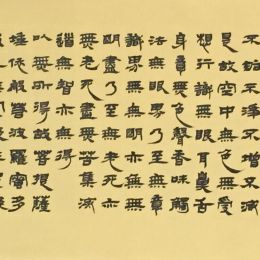 不垢不淨不增不減
是故空中無色無受
想行識無眼耳鼻舌
身意無色聲香味觸
法無眼界乃至無意
識界無無明亦無無
明盡乃至無老死亦
無老死盡無苦集滅
道無智亦無得
以無所得故菩提薩
埵依般若波羅蜜多